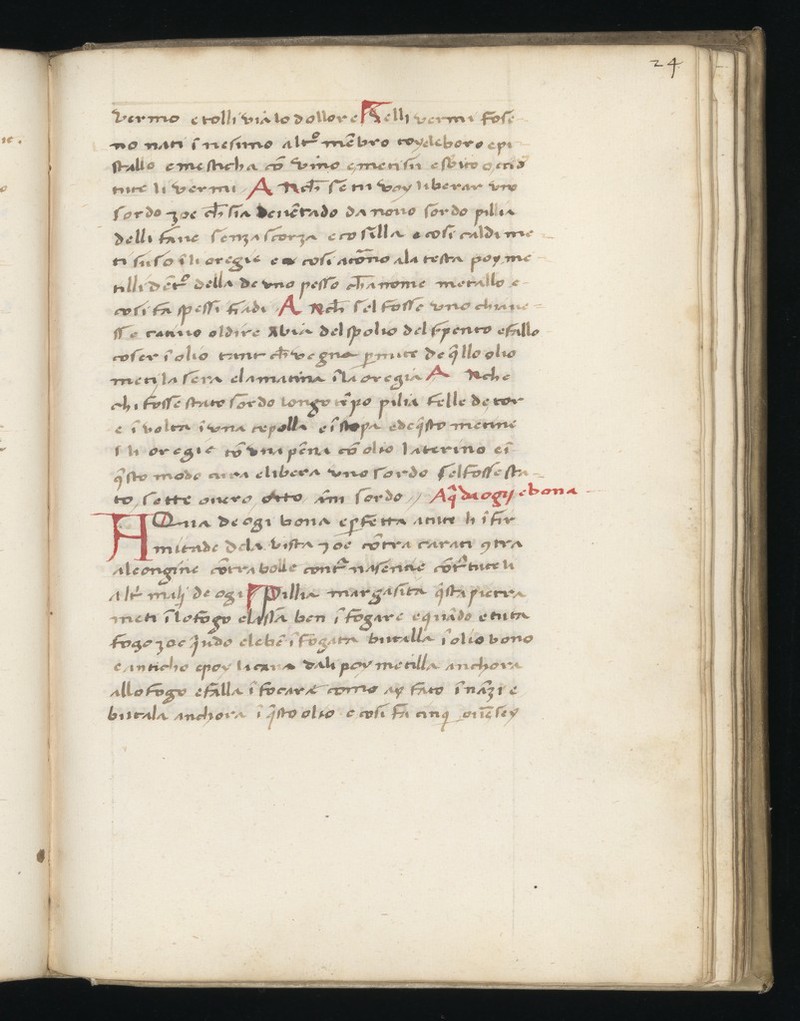 24
vermo e tolli via lo dollore Selli vermi fose
no nati ĩ nesuno altº mẽbro toy deboro e pi
stallo e mesticha cõ vino e meti su e sbito occid
tute li vermi A Nch̃ se tu voy liberar vno
sordo zoe ch̃ sia deuẽtado da nouo sordo pillia
delli faue senza scorza e cosilla e cosi caldi me
ti suso ĩ li oregie e cosi atõno a la testa poy me
tilli dẽtº della de vno pesso ch̃ a nome metallo e
cosi fa spessi fiadi A Nch̃ sel fosse vno ch
sse catiuo oldire abia del spolio del spento e fallo
coser ĩ olio tant ch̃ vegna de q̃llo olio
meti la sera e la matina ĩ la oregia A Nche
chi fosse stato sordo longo tẽpo pilia felle de tor
e ĩ volta ĩ vna cepolla e ĩ stopa e de q̃sto metine
ĩ li oregie cõ vna pẽna cõ olio laterino e ĩ
q̃sto modo cura e libera vno sordo sel fosse sta
to sette ouero otto ãni sordo Aq̃ da ogij e bona
AQua de ogi bona e perfetta a tute li ĩfir
mitade dela vista zoe cõtra carati 9tra
ale ongine cõtra bolle contra nasencie cõtr tute li
altr malj de ogi Pillia margasita q̃sta pietra
meti ĩ lo fogo e lasla ben ĩfogare e quãdo e tuta
fogo zoe q̃ndo ele bẽ ĩfogata butalla ĩ olio bono
e anticho e poy li caua da li poy metilla anchora
allo fogo e falla ĩfocare como ay fato ĩnãzi e
butala anchora ĩ q̃sto olio e cosi fa cinq ouer sey